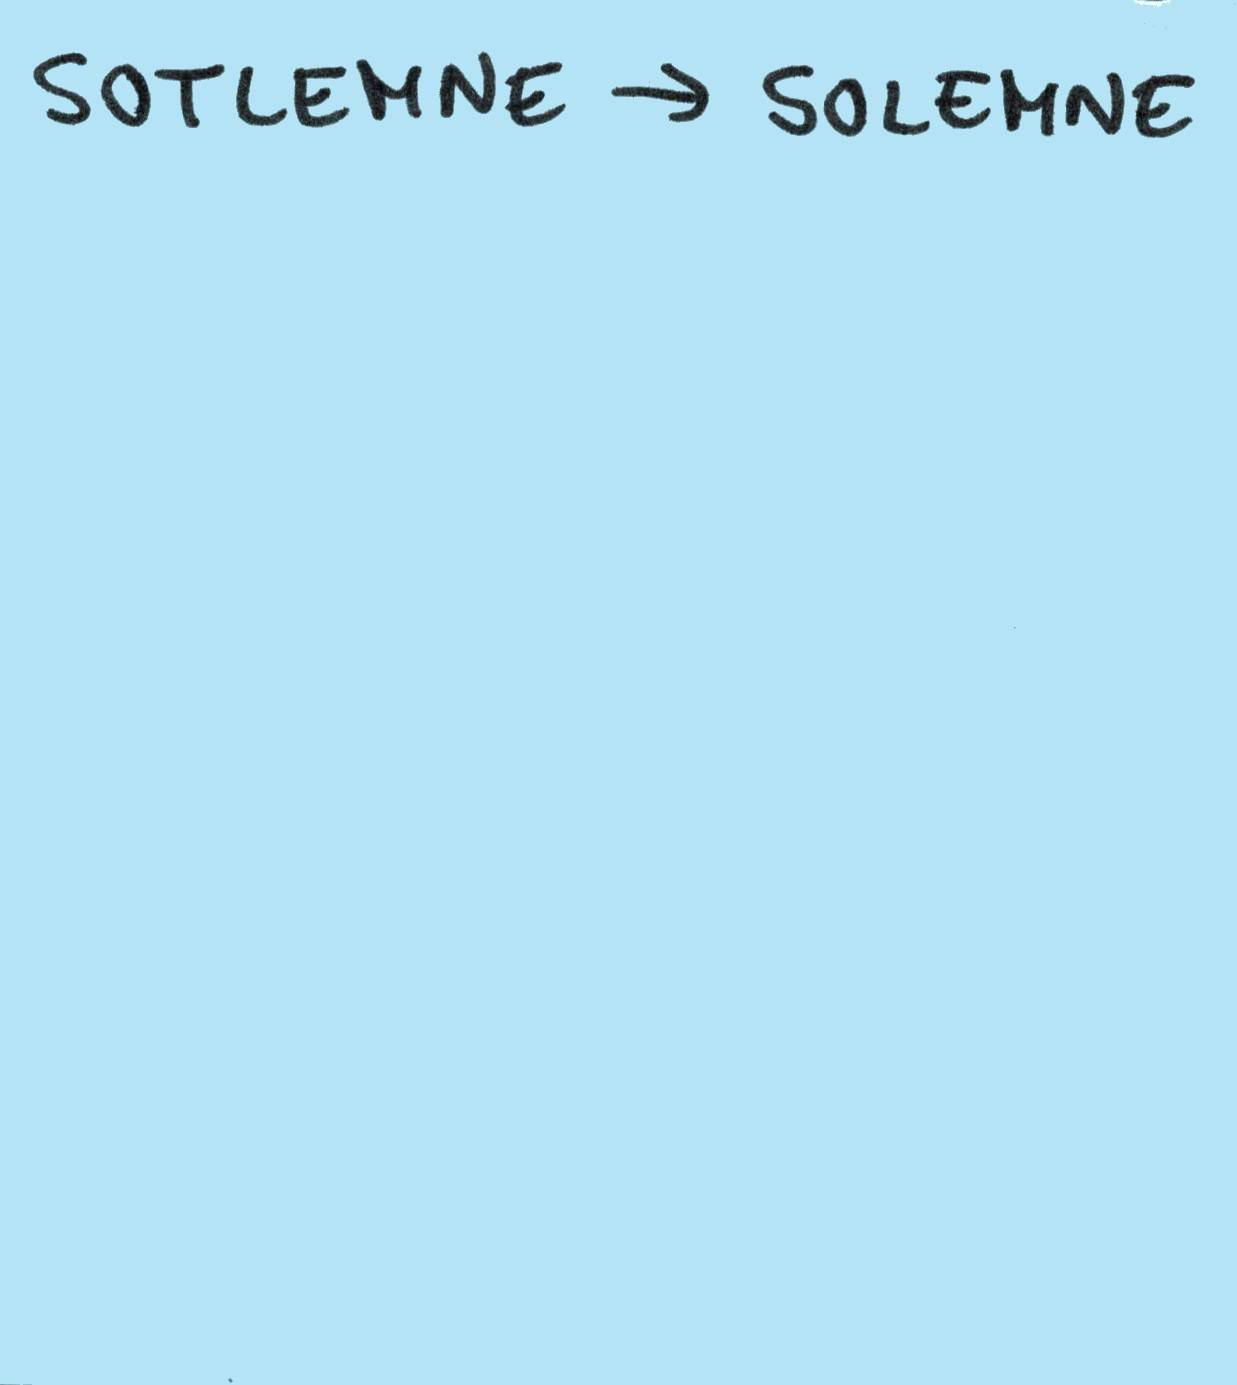 SOTLEMNE → SOLEMNE